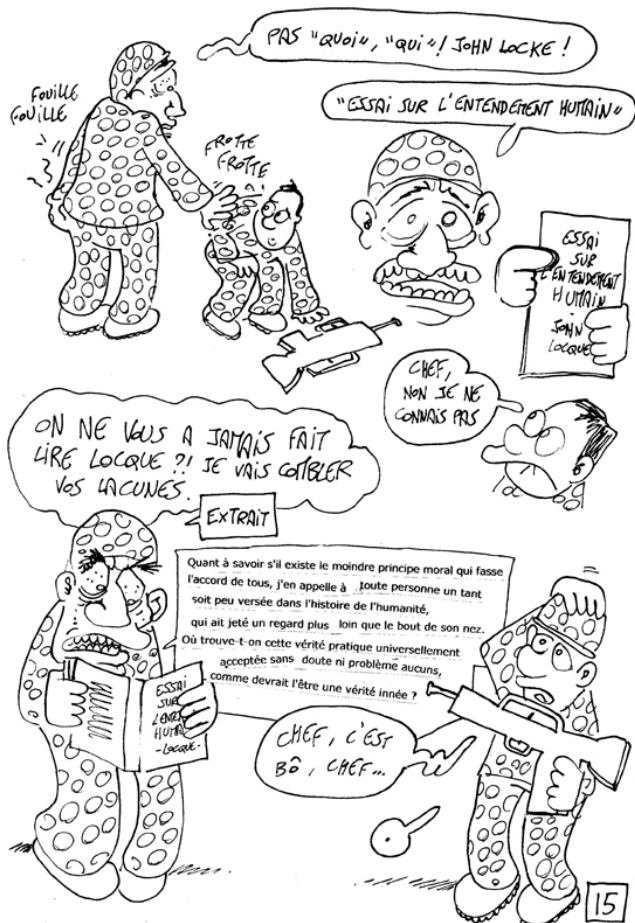 PAS "QUOI", "QUI"! JOHN LOCKE !
FOUILLE
FOUILLE
"ESSAI SUR L'ENTENDEMENT HUMAIN"
FROTTE
FROTTE
ESSAI
SUR
L'ENTENDEMENT
HUMAIN
-
JOHN
LOCQUE
CHEF,
NON JE NE
CONNAIS PAS
ON NE VOUS A JAMAIS FAIT
LIRE LOCQUE ?! JE VAIS COMBLER
VOS LACUNES.
EXTRAIT
Quant à savoir s'il existe le moindre principe moral qui fasse
l'accord de tous, j'en appelle à toute personne un tant
soit peu versée dans l'histoire de l'humanité,
qui ait jeté un regard plus loin que le bout de son nez.
Où trouve-t-on cette vérité pratique universellement
acceptée sans doute ni problème aucuns,
comme devrait l'être une vérité innée ?
ESSAI
SUR
L'ENTEN
HUMAI
-LOCQUE-
CHEF, C'EST
BÔ, CHEF...
15